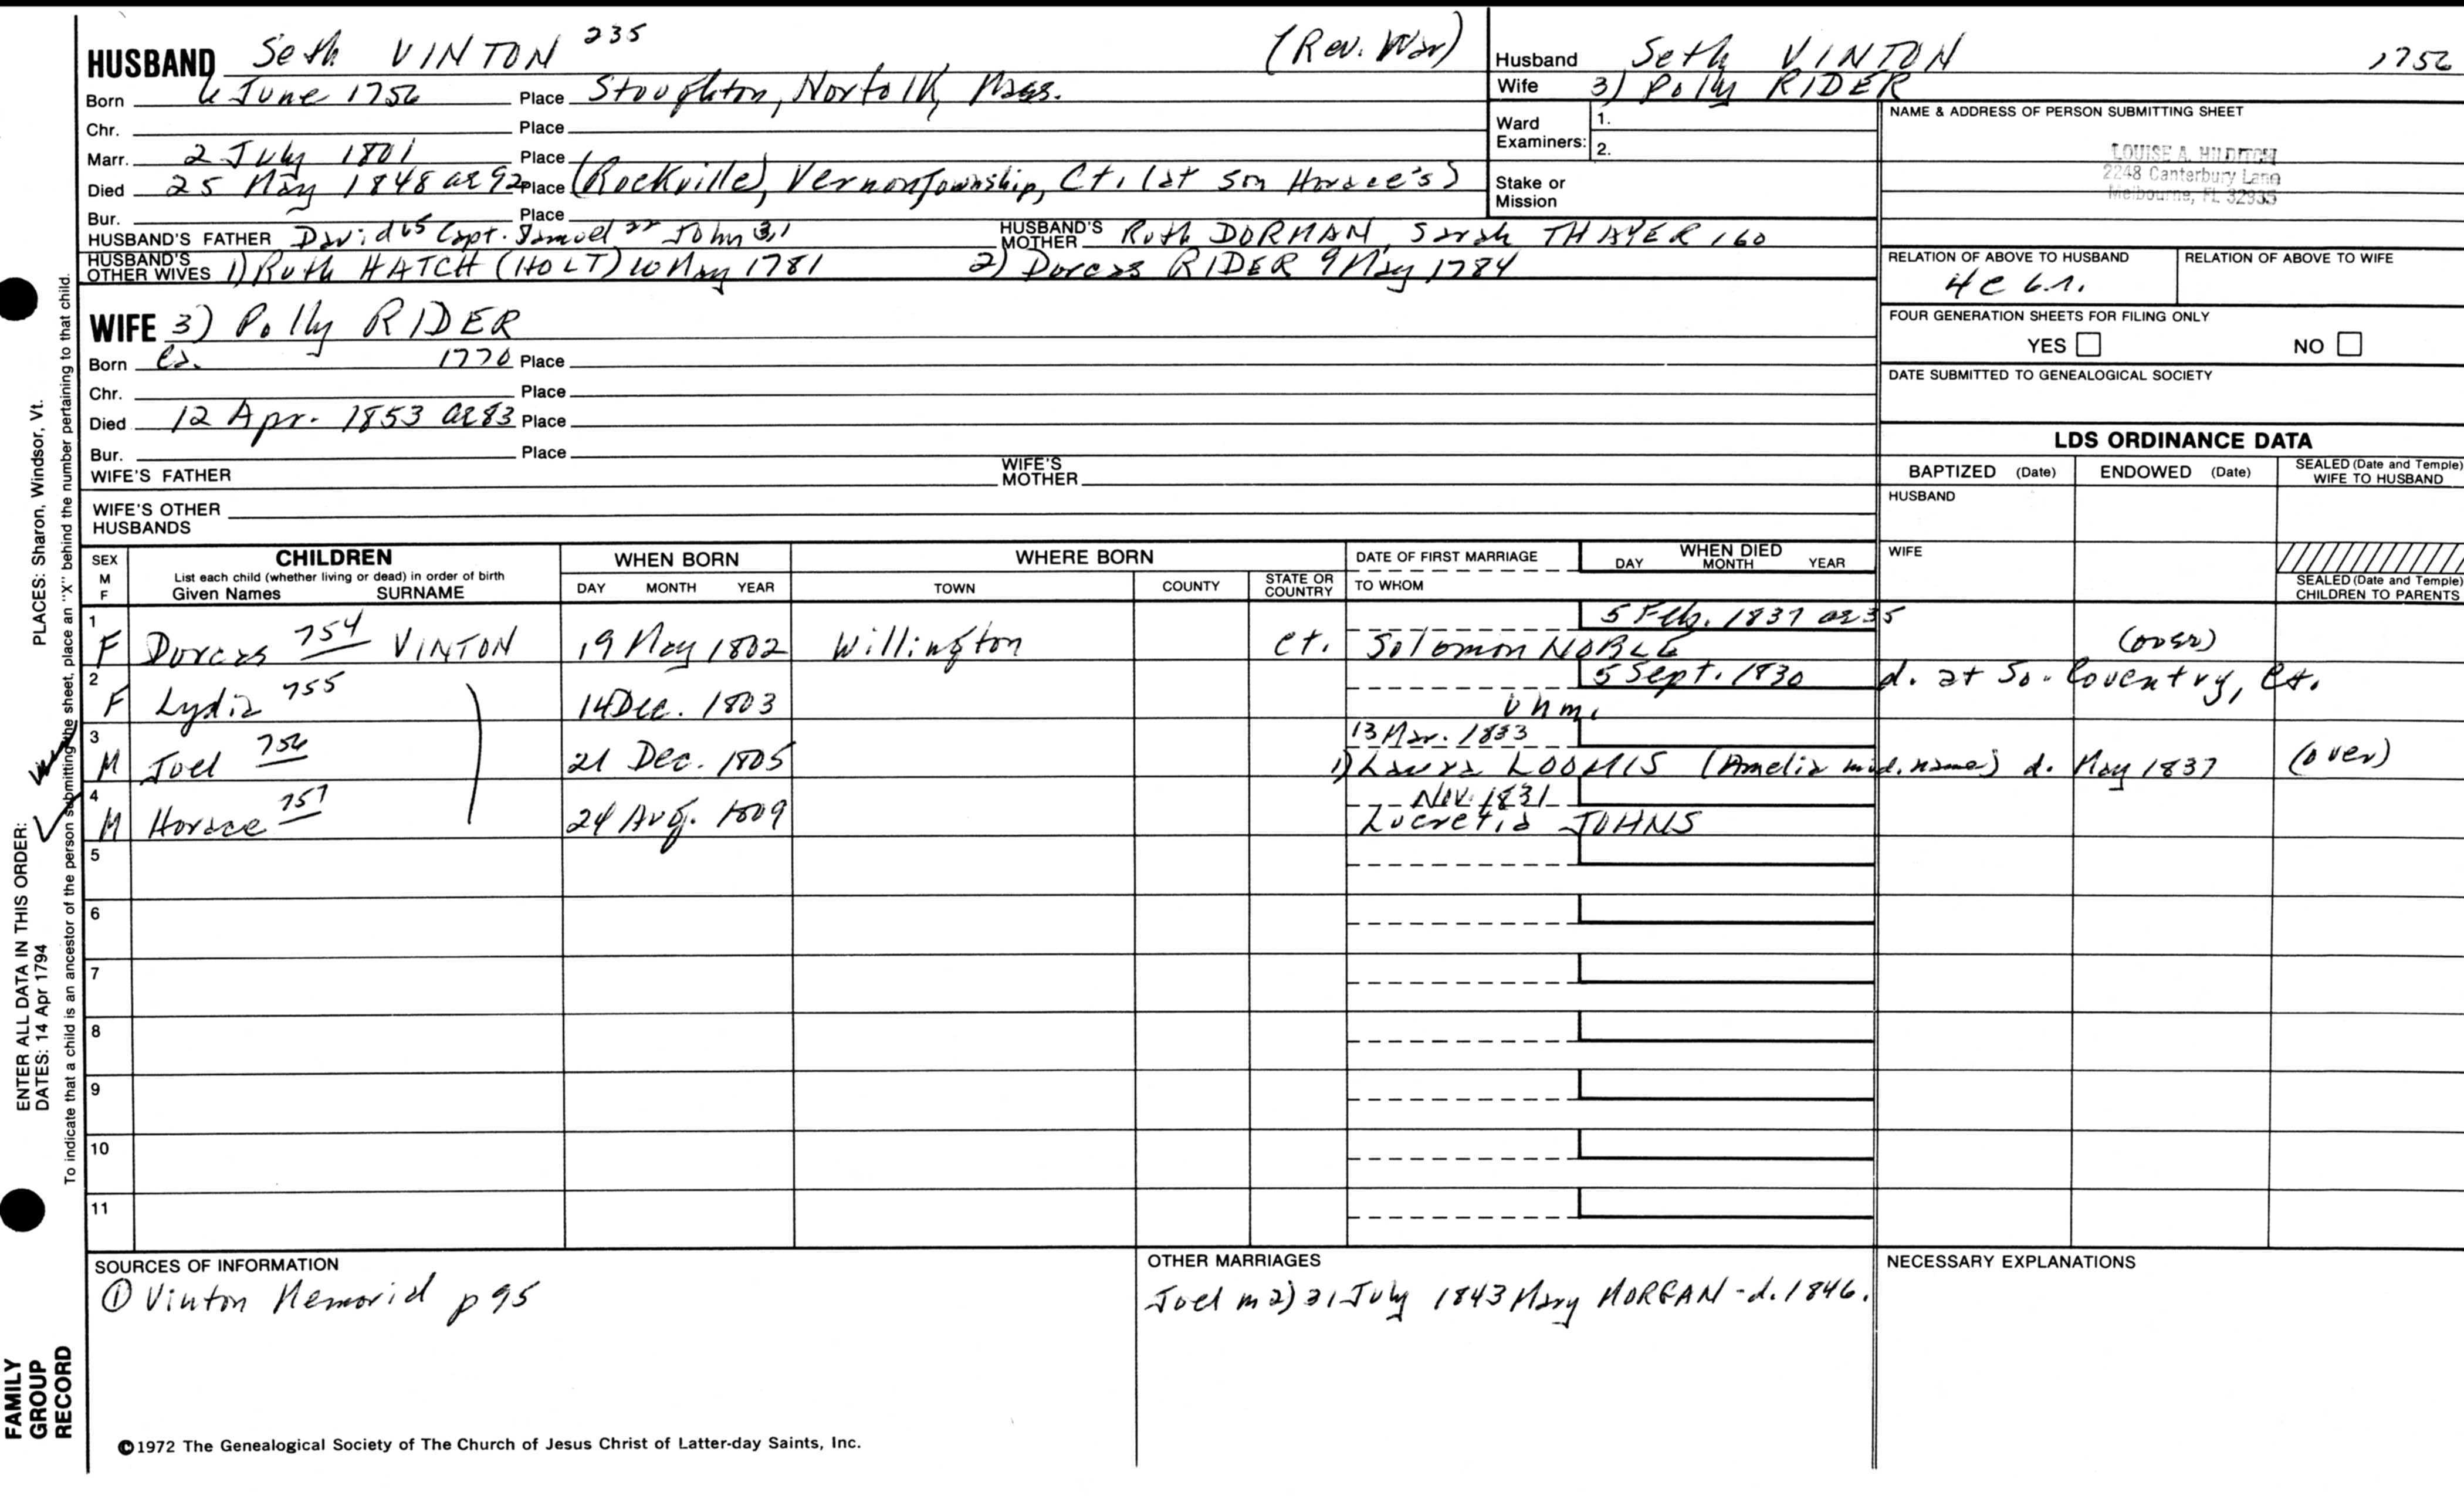 HUSBAND Seth VINTON 235 (Rev. War)
Born 6 June 1756 Place Stoughton, Norfolk, Mass.
Chr. Place
Marr. 2 July 1801 Place
Died 25 May 1848 ae 92 Place (Rockville), Vernon Township, Ct. (at son Horace's)
Bur. Place
HUSBAND'S FATHER David 65 Capt. Samuel 22 John 3,1 HUSBAND'S MOTHER Ruth DORMAN, Sarah THAYER 160
HUSBAND'S OTHER WIVES 1) Ruth HATCH (HOLT) 10 May 1781 2) Dorcas RIDER 9 May 1784
WIFE 3) Polly RIDER
Born ca. 1770 Place
Chr. Place
Died 12 Apr. 1853 ae 83 Place
Bur. Place
WIFE'S FATHER WIFE'S MOTHER
WIFE'S OTHER HUSBANDS
Husband Seth VINTON 1756
Wife 3) Polly RIDER
Ward Examiners: 1.
2.
Stake or Mission
NAME & ADDRESS OF PERSON SUBMITTING SHEET
LOUISE A. HILDITCH
2248 Canterbury Lane
Melbourne, FL 32935
RELATION OF ABOVE TO HUSBAND RELATION OF ABOVE TO WIFE
4c 6.r.
FOUR GENERATION SHEETS FOR FILING ONLY
YES NO
DATE SUBMITTED TO GENEALOGICAL SOCIETY
LDS ORDINANCE DATA
BAPTIZED (Date) ENDOWED (Date) SEALED (Date and Temple) WIFE TO HUSBAND
HUSBAND
WIFE
SEALED (Date and Temple) CHILDREN TO PARENTS
SEX M F CHILDREN WHEN BORN WHERE BORN DATE OF FIRST MARRIAGE WHEN DIED
List each child (whether living or dead) in order of birth
Given Names SURNAME DAY MONTH YEAR TOWN COUNTY STATE OR COUNTRY TO WHOM DAY MONTH YEAR
1 5 Feb. 1837 ae 35
F Dorcas 754 VINTON 19 May 1802 Willington Ct. Solomon NOBLE (over)
2 5 Sept. 1830 d. at So. Coventry, Ct.
F Lydia 755 14 Dec. 1803 unm.
3 13 Mar. 1833
M Joel 756 21 Dec. 1805 1) Laura LOOMIS (Amelia mid. name) d. May 1837 (over)
4 Nov. 1831
M Horace 757 24 Aug. 1809 Lucretia JOHNS
5
6
7
8
9
10
11
SOURCES OF INFORMATION
① Vinton Memorial p 95
OTHER MARRIAGES
Joel m 2) 31 July 1843 Mary MORGAN - d. 1846.
NECESSARY EXPLANATIONS
©1972 The Genealogical Society of The Church of Jesus Christ of Latter-day Saints, Inc.
FAMILY GROUP RECORD
ENTER ALL DATA IN THIS ORDER:
DATES: 14 Apr 1794
PLACES: Sharon, Windsor, Vt.
To indicate that a child is an ancestor of the person submitting the sheet, place an "X" behind the number pertaining to that child.